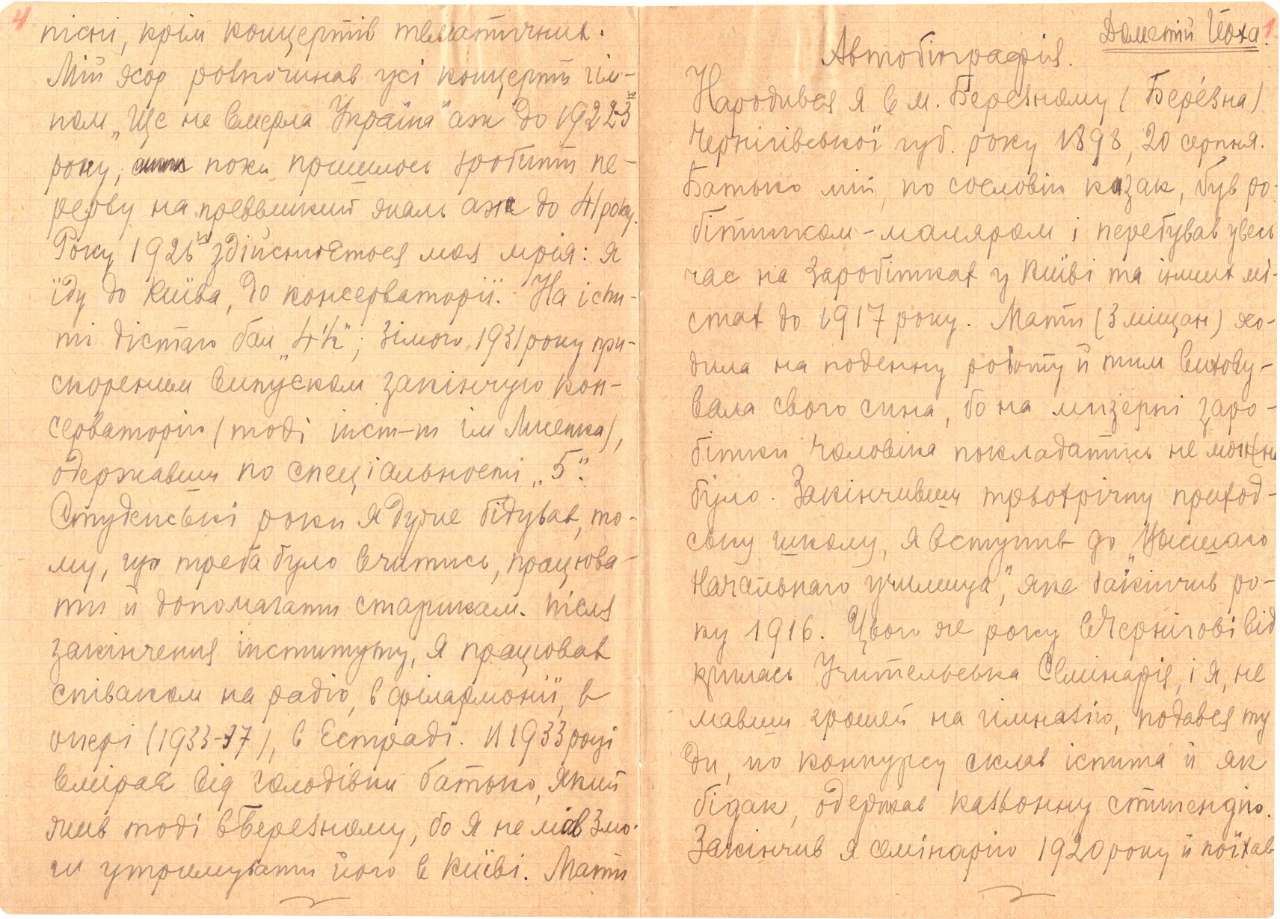 4
пісні, крім концертів тематичних.
Мій хор розпочинав усі концерти гім-
ном „Ще не вмерла Україна" аж до 1922-3
року, поки прийшлось зробити пе-
рерву на превеликий жаль аж до 41 року.
Року 1926 здійснюється моя мрія: я
їду до Київа, до консерваторії. На іспи-
ті дістаю бал „4½"; зімою 1931 року при-
скореним випуском закінчую кон-
серваторію (тоді інст-т ім Лисенка),
одержавши по спеціяльності „5".
Студентські роки я дуже бідував, то-
му, що треба було вчитись, працюва-
ти й допомагати старикам. Після
закінчення інституту, я працював
співаком на радіо, в філармонії, в
опері (1933-37), в Естраді. И 1933 році
вмірає від голодівки батько, який
жив тоді в Березному, бо я не мав змо-
ги утримувати його в Київі. Мати
Дометій Йоха. 1
Автобіографія.
Народився я в м. Березному (Берéзна)
Чернігівської губ. року 1898, 20 серпня.
Батько мій, по сословію казак, був ро-
бітником-маляром і перебував увесь
час на заробітках у Київі та інших мі-
стах до 1917 року. Мати (з міщан) хо-
дила на поденну роботу й тим вихову-
вала свого сина, бо на мізерні заро-
бітки чоловіка покладатись не можна
було. Закінчивши трьохрічну приход-
ську школу, я вступив до „Висшаго
Начальнаго училища", яке закінчив ро-
ку 1916. Цього же року в Чернігові від
крилась Учительська Семінарія, і я, не
мавши грошей на гімназію, подався ту
ди, по конкурсу склав іспита й як
бідак, одержав казьонну стипендію.
Закінчив я семінарію 1920 року й поїхав